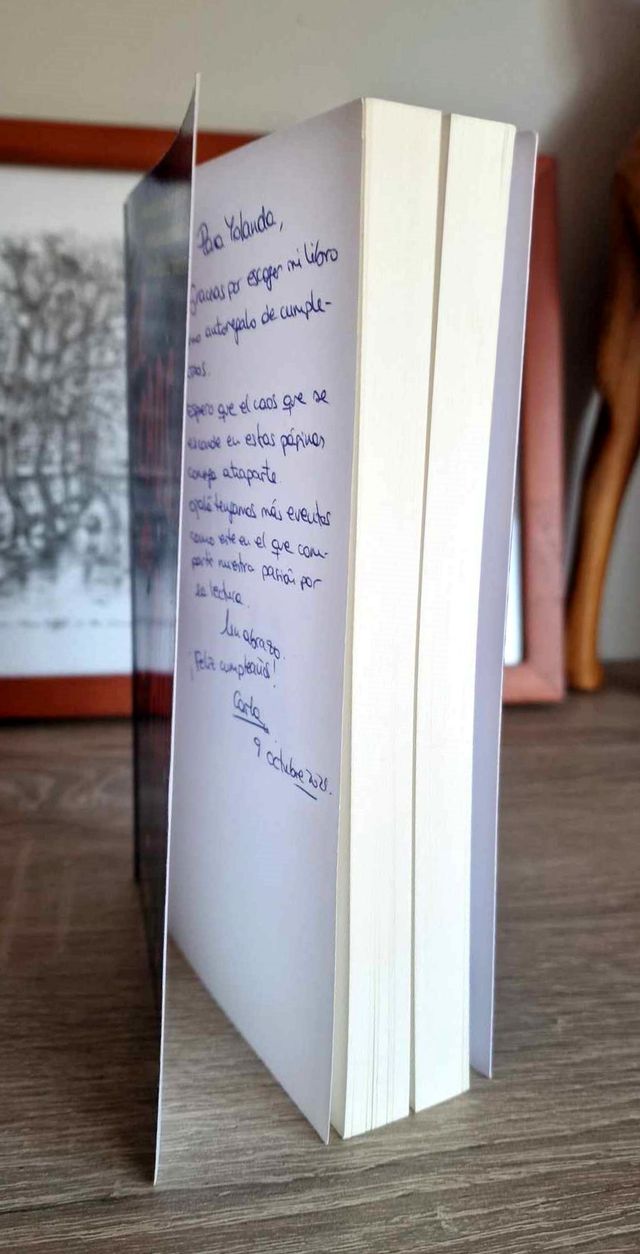 Para Yolanda,
Gracias por escoger mi libro
mo autoregalo de cumple-
años.
Espero que el caos que se
esconde en estas páginas
consiga atraparte.
Ojalá tengamos más eventos
como este en el que com-
partir nuestra pasión por
la lectura.
Un abrazo.
¡Feliz cumpleaños!
Carla
9 octubre